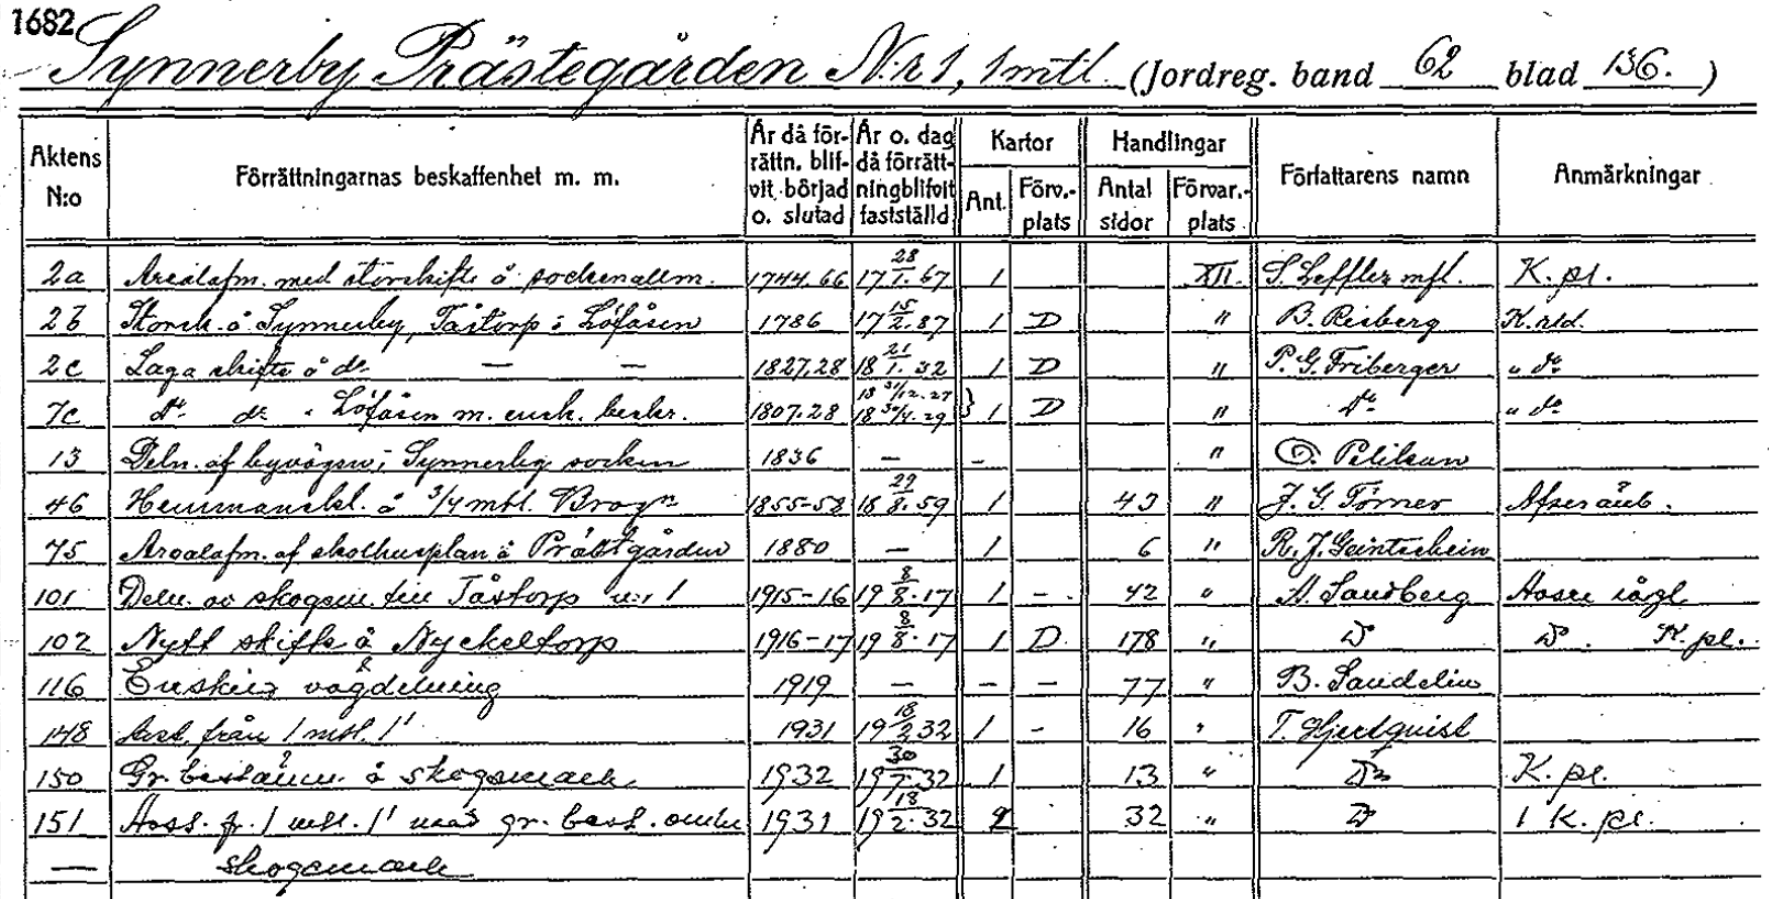 1682
Synnerby Prästegården N:r 1, 1 mtl. (Jordreg. band 62 blad 136.)
Aktens N:o Förrättningarnas beskaffenhet m. m. År då förrättn. blifvit börjad o. slutad År o. dag då förrättning blifvit fastställd Kartor Ant. Förv.-plats Handlingar Antal sidor Förvar.-plats Författarens namn Anmärkningar
2a Arealafm. med storskifte å sockenallm. 1744.66 17 28/1.67 1 XII. S. Leffler mfl. K. pl.
2b Storsk. å Synnerby, Tåstorp i Löfåsen 1786 17 15/2.87 1 D " B. Risberg K.
2c Laga skifte å do — — 1827.28 18 21/1.32 1 D " P. G. Friberger " do
7c do do " Löfåsen m. ensk. beskr. 1807.28 18 31/12.27 18 30/4.29 } 1 D " do " do
13 Deln. af byvägen i Synnerby socken 1836 — - " O. Pelikan
46 Hemmanskl. å 3/4 mtl. 1855-58 18 29/8.59 1 43 " J. G. Törner
75 Arealafm. af skolhusplan å Prästgården 1880 — 1 6 " R. J.
101 Deln. av skogen till Tåstorp n:r 1 1915-16 19 8/8.17 1 - 42 " A. Sandberg
102 Nytt skifte å Nyckeltorp 1916-17 19 8/8.17 1 D. 178 " Do Do. K. pl.
116 Enskild vägdelning 1919 — - - 77 " B. Sandelin
148 Avst. från 1 mtl. 1' 1931 19 18/2 32 1 - 16 " T. Hjertquist
150 Gr. bestämn. å skogsmark 1932 19 30/7.32 1 13 " Do K. pl.
151 Avst. fr. 1 mtl. 1' med gr. best. 1931 19 18/2.32 2 32 " Do 1 K. pl.
— skogsmark